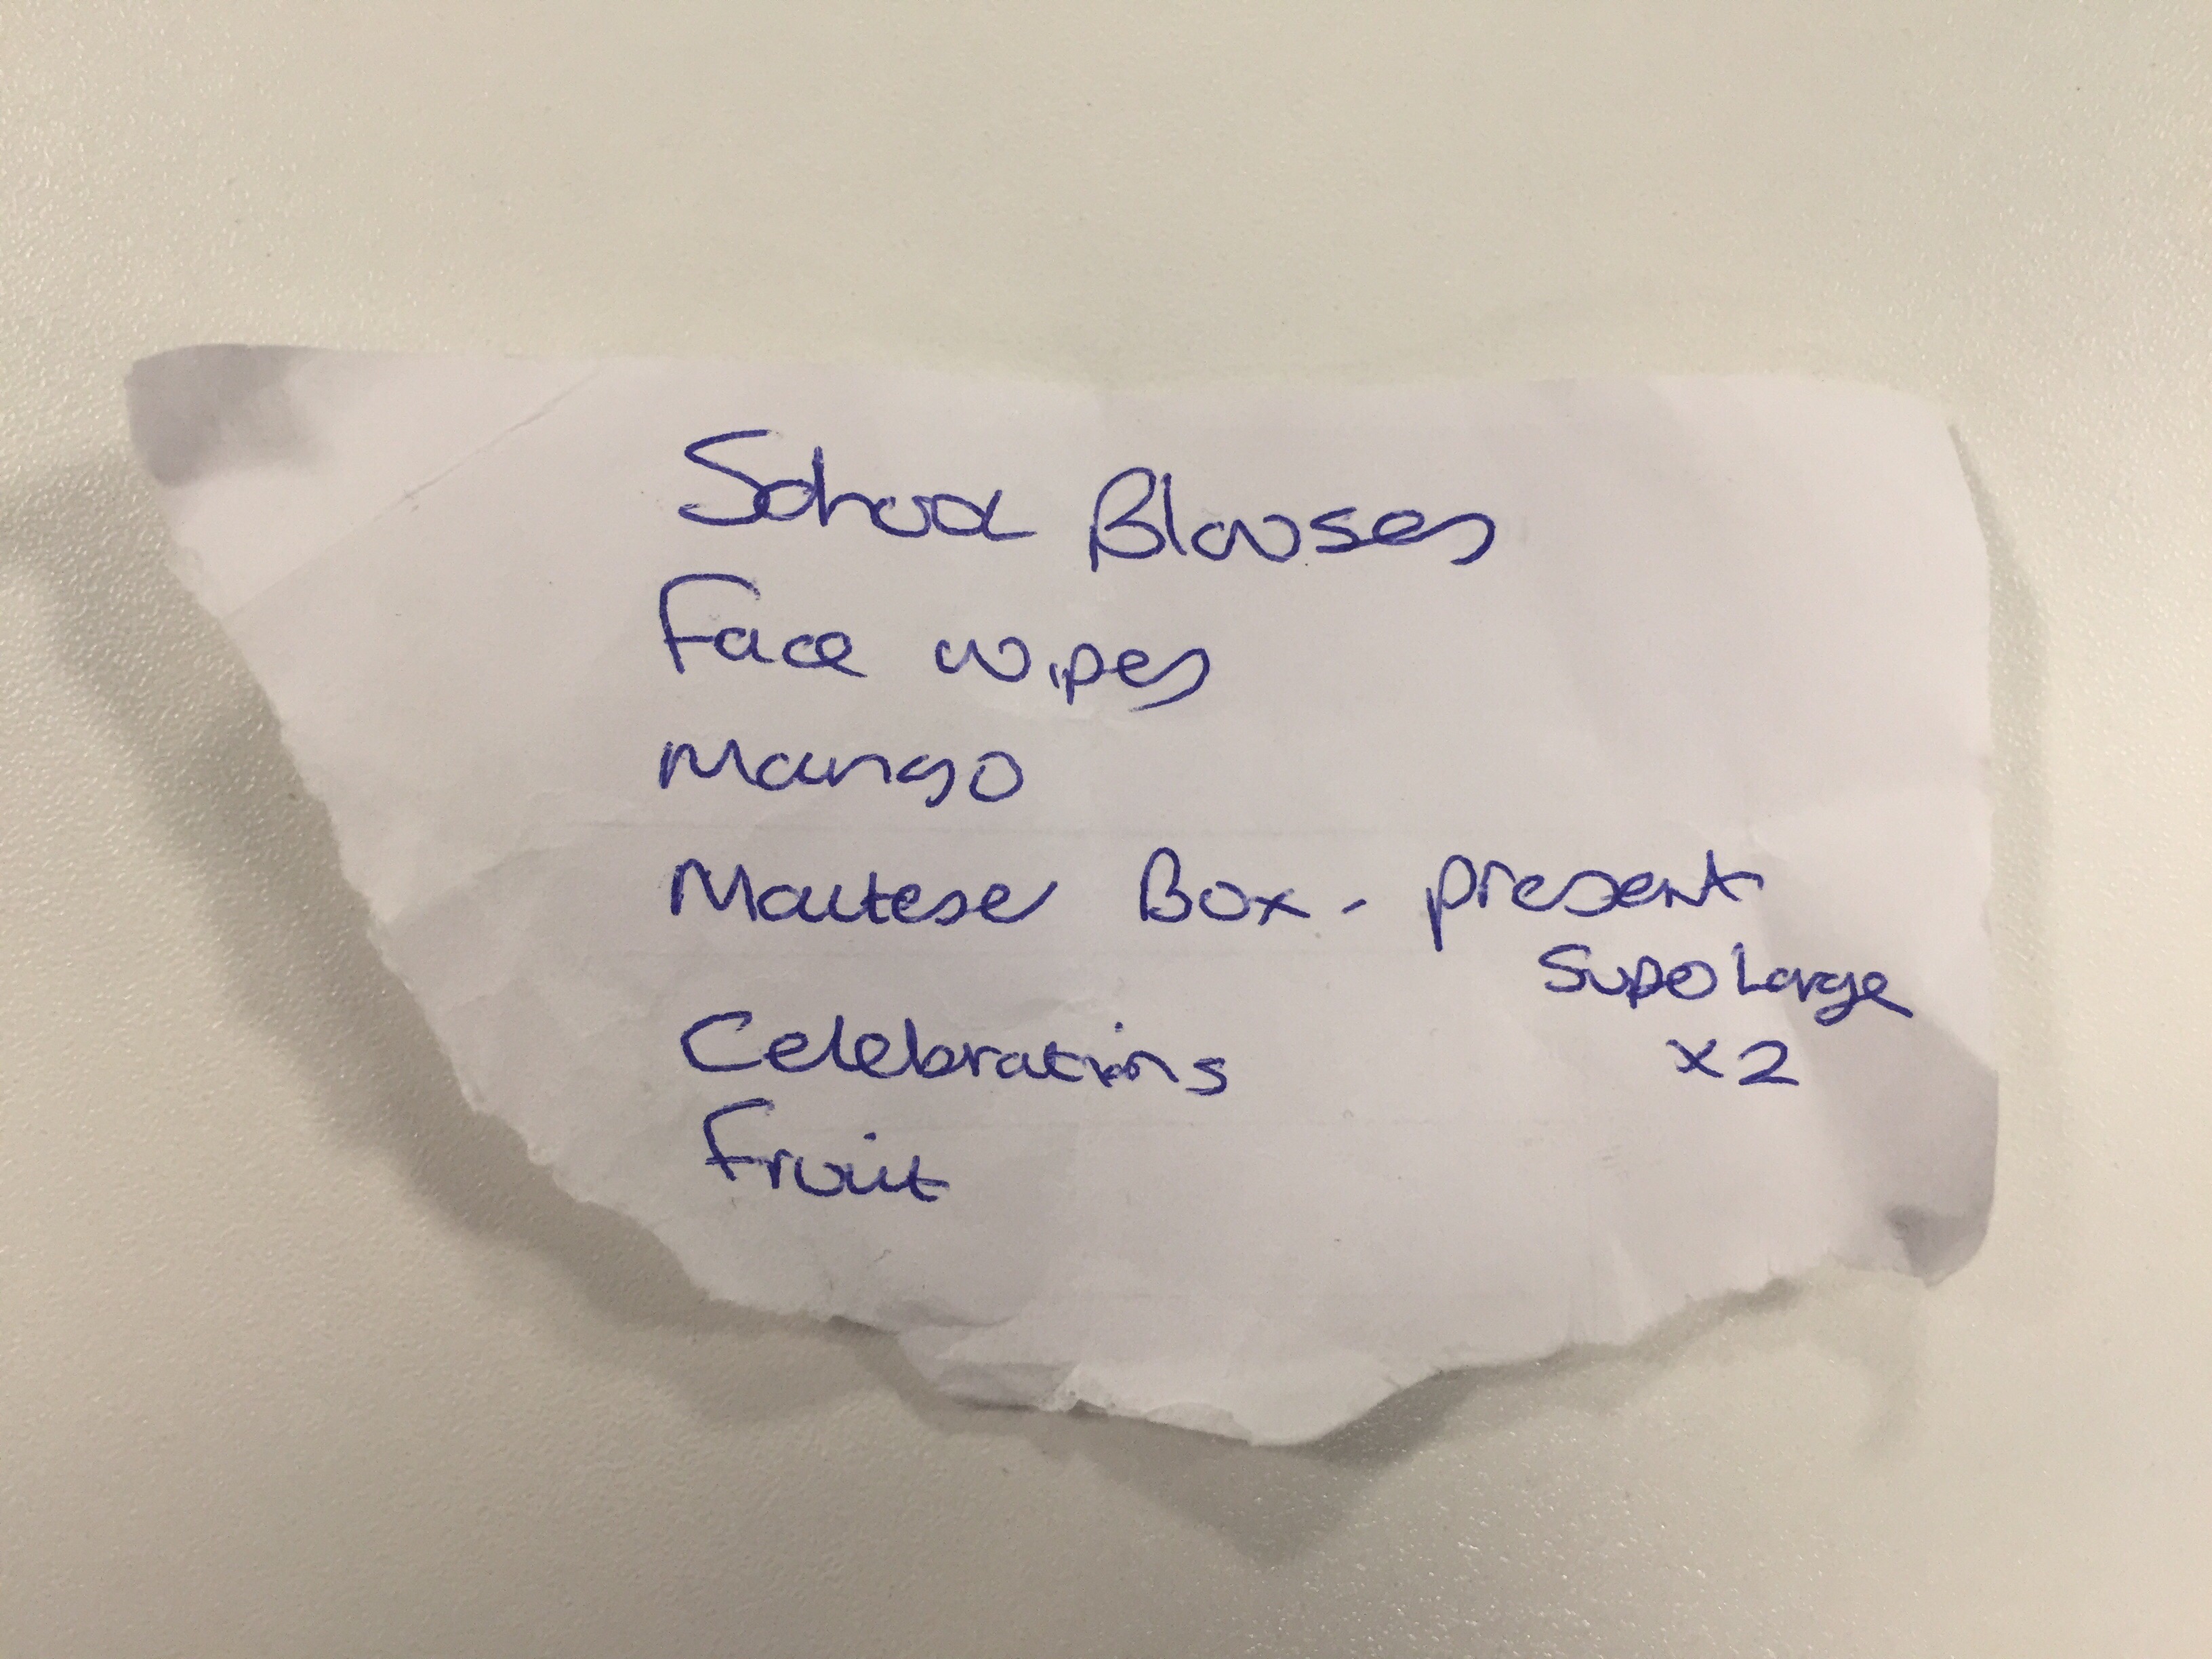 School Blouses
Face wipes
Mango
Malteser Box - present
Super Large
x2
Celebrations
Fruit